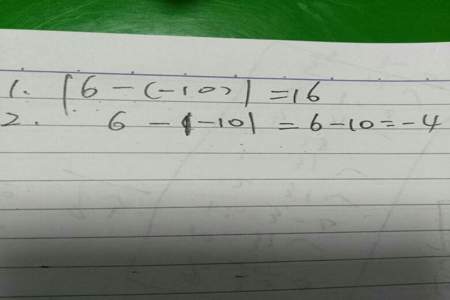 1. |6-(-10)|=16
2. 6-|-10|=6-10=-4